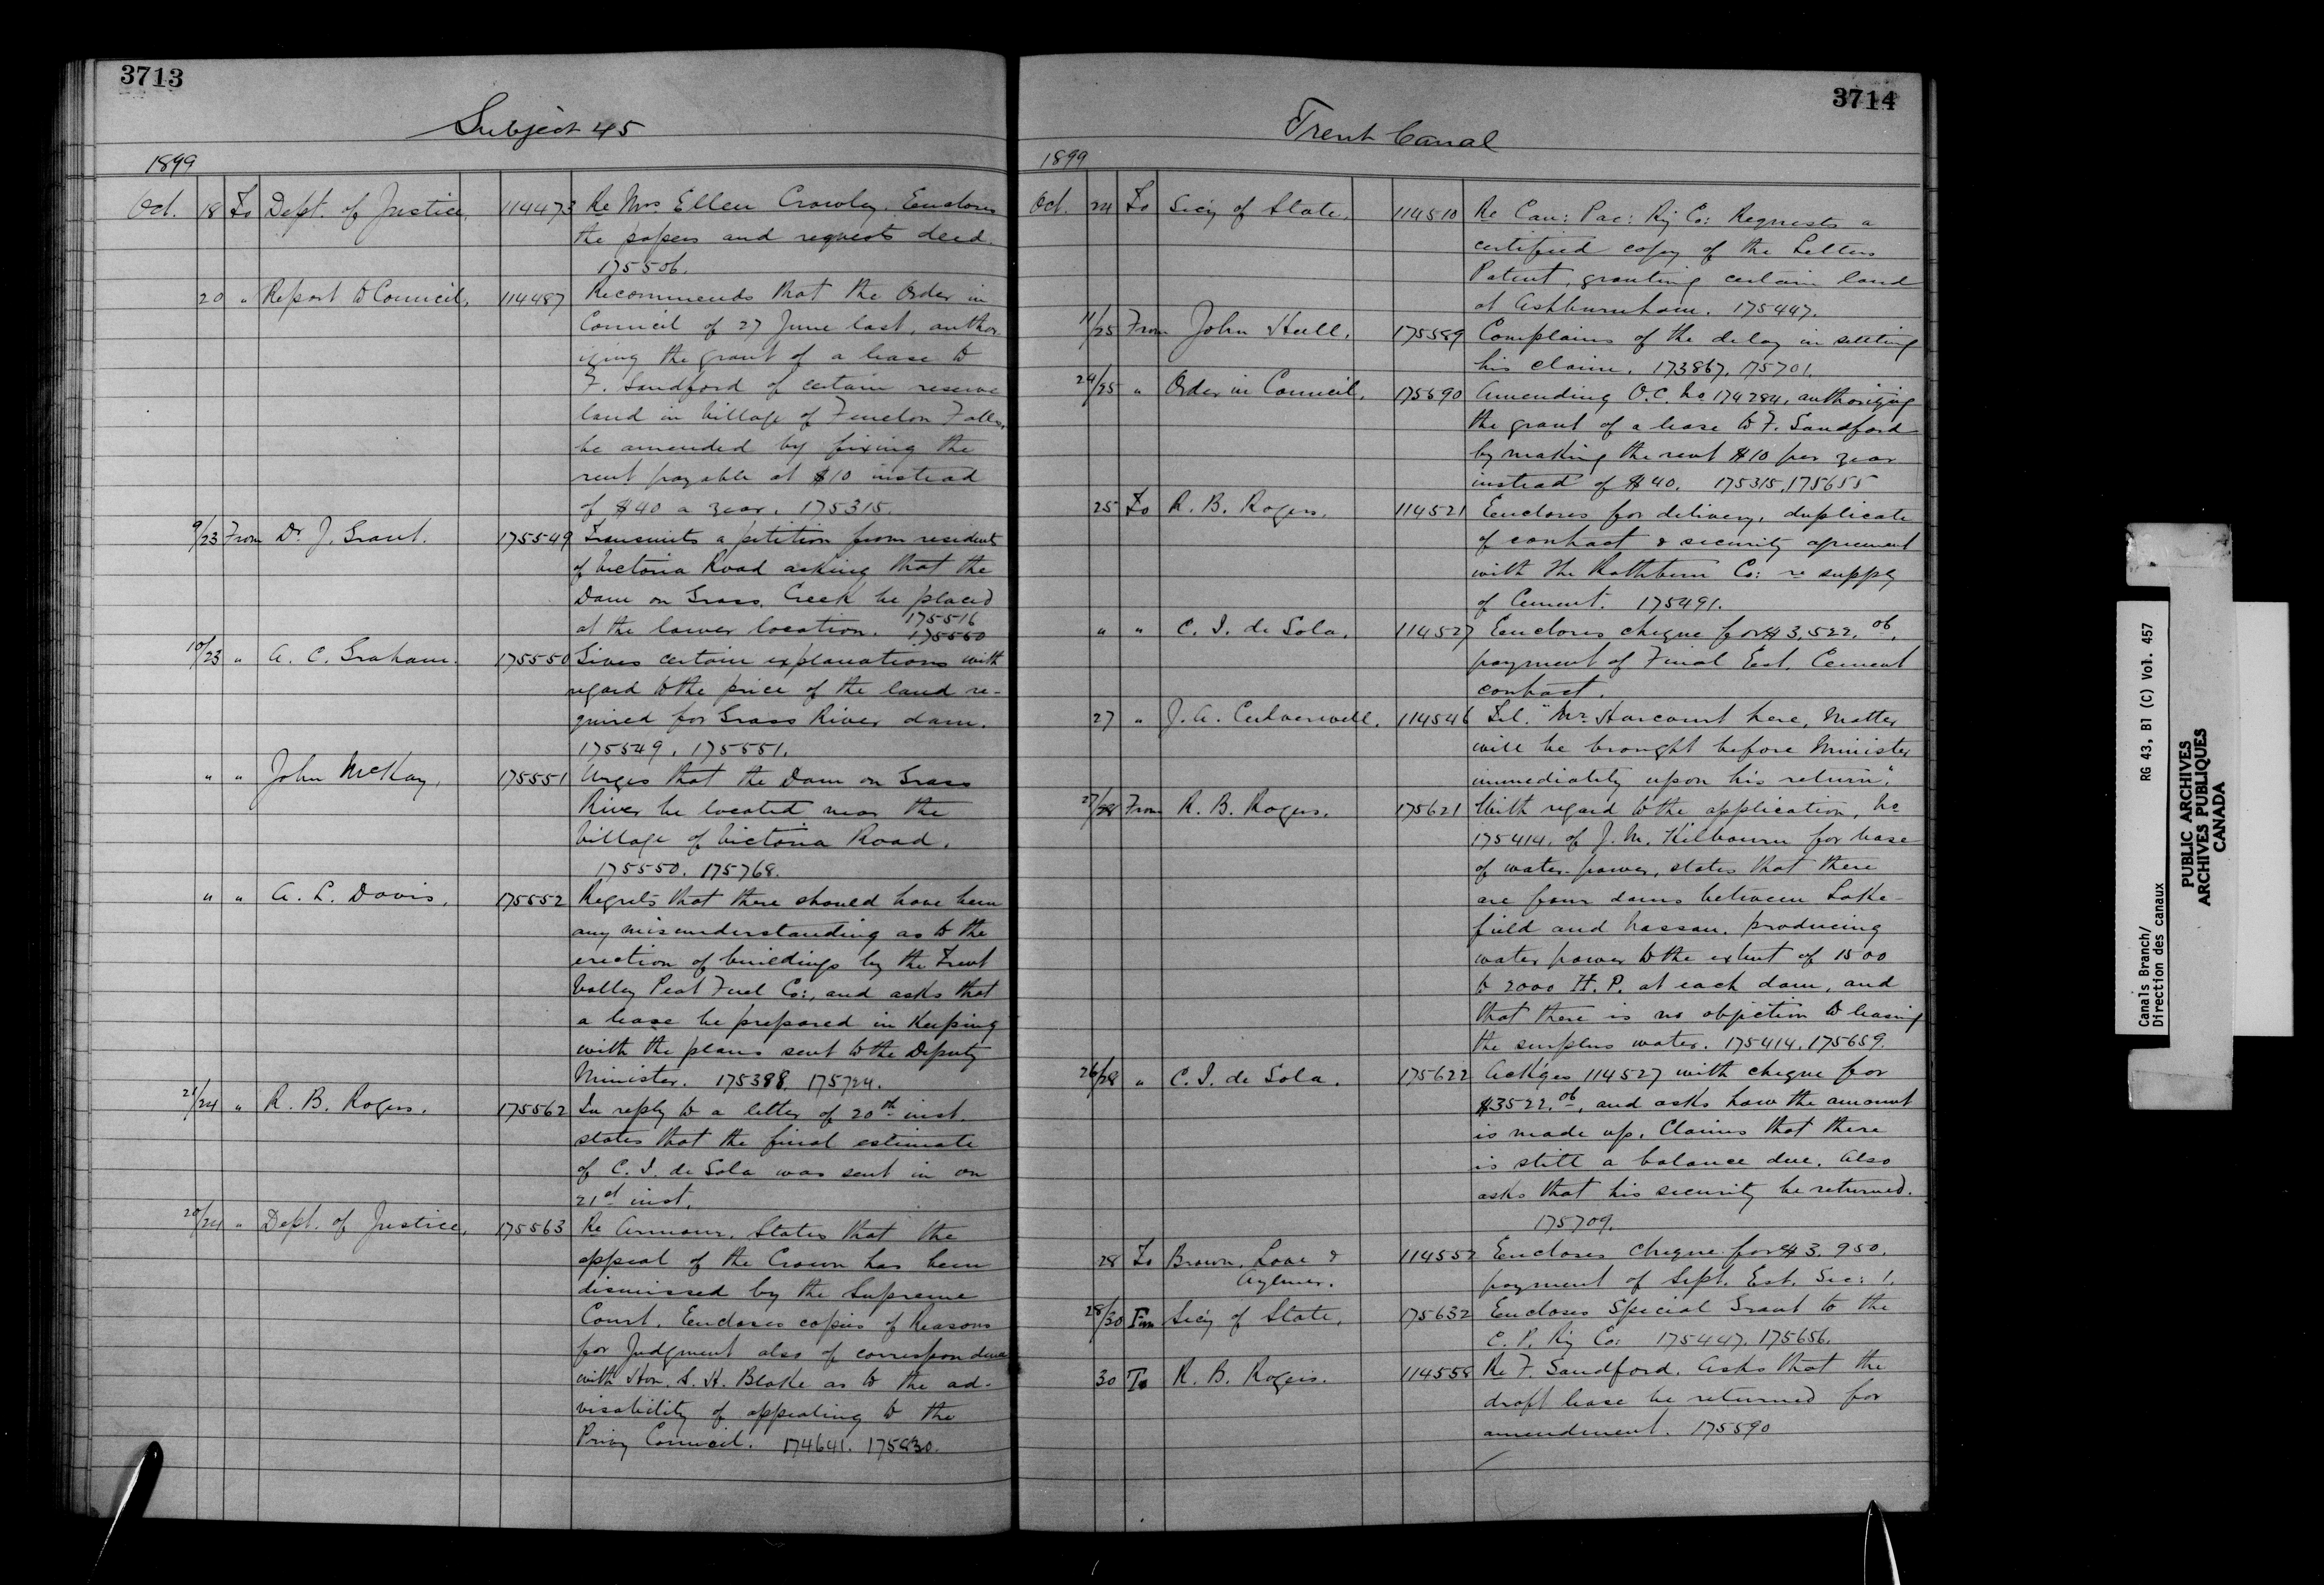 3713
Subject 45
1899
Oct. 18 To Dept. of Justice. 114473 Re Mrs Ellen Crowley. Encloses
the papers and requests deed.
175506.
20 " Report to Council. 114487 Recommends that the Order in
Council of 27 June last, author-
izing the grant of a lease to
F. Sandford of certain reserve
land in Village of Fenelon Falls,
be amended by fixing the
rent payable at $10 instead
of $40 a year. 175315.
9/23 From Dr J. Grant. 175549 Transmits a petition from residents
of Victoria Road asking that the
Dam on Grass Creek be placed
at the lower location. 175516
175550
10/23 " A. C. Graham. 175550 Gives certain explanations with
regard to the price of the land re-
quired for Grass River dam.
175549. 175551.
" " John McKay. 175551 Urges that the Dam on Grass
River be located near the
Village of Victoria Road.
175550. 175768.
" " A. L. Davis. 175552 Regrets that there should have been
any misunderstanding as to the
erection of buildings by the Trent
Valley Peat Fuel Co:, and asks that
a lease be prepared in keeping
with the plans sent to the Deputy
Minister. 175388. 175724.
21/24 " R. B. Rogers. 175562 In reply to a letter of 20th inst.
states that the final estimate
of C. I. de Sola was sent in on
21st inst.
20/24 " Dept. of Justice. 175563 Re Armour. States that the
appeal of the Crown has been
dismissed by the Supreme
Court. Encloses copies of Reasons
for Judgment also of correspondence
with Hon. S. H. Blake as to the ad-
visability of appealing to the
Privy Council. 174641. 175830.
3714
Trent Canal
1899
Oct. 24 To Sec'y of State. 114510 Re Can: Pac: Ry Co: Requests a
certified copy of the Letters
Patent, granting certain land
at Ashburnham. 175447.
11/25 From John Hull. 175589 Complains of the delay in settling
his claim. 173867. 175701.
24/25 " Order in Council. 175590 Amending O.C. No 174784, authorizing
the grant of a lease to F. Sandford
by making the rent $10 per year
instead of $40. 175315. 175655
25 To R. B. Rogers. 114521 Encloses for delivery, duplicate
of contract & security agreement
with The Rathbun Co: re supply
of Cement. 175491.
" " C. I. de Sola. 114527 Encloses cheque for $3,522.06.
payment of Final Est. Cement
contract.
27 " J. A. Culverwell. 114546 Tel. "Mr Harcourt here, Matter
will be brought before Minister
immediately upon his return".
27/28 From R. B. Rogers. 175621 With regard to the application, No
175414, of J. M. Kilbourn for lease
of water-power, states that there
are four dams between Lake-
field and Nassau, producing
water power to the extent of 1500
to 2000 H. P. at each dam, and
that there is no objection to leasing
the surplus water. 175414. 175659.
26/28 " C. I. de Sola. 175622 Ack'ges 114527 with cheque for
$3522.06, and asks how the amount
is made up. Claims that there
is still a balance due. Also
asks that his security be returned.
175709.
28 To Brown, Love & 114552 Encloses cheque for $3,950.
Aylmer. payment of Sept. Est. Sec: 1.
28/30 Fm Sec'y of State. 175632 Encloses Special Grant to the
C. P. Ry Co: 175447. 175656.
30 To R. B. Rogers. 114558 Re F. Sandford. Asks that the
draft lease be returned for
amendment. 175590
Canals Branch/ RG 43, B1 (C) Vol. 457
Direction des canaux
PUBLIC ARCHIVES
ARCHIVES PUBLIQUES
CANADA